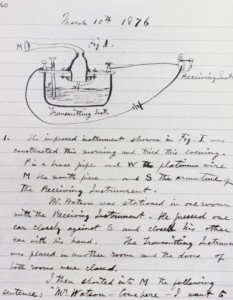 40
March 10th 1876
Fig 1.
M
Receiving Inst
Transmitting Inst.
1. The improved instrument shown in Fig. I was
constructed this morning and tried this evening.
P is a brass pipe and W the platinum wire
M the mouth piece and S the armature of
the Receiving Instrument.
Mr. Watson was stationed in one room
with the Receiving Instrument. He pressed one
ear closely against S and closed his other
ear with his hand. The Transmitting Instrument
was placed in another room and the doors of
both rooms were closed.
I then shouted into M the following
sentence: "Mr. Watson—Come here—I want to